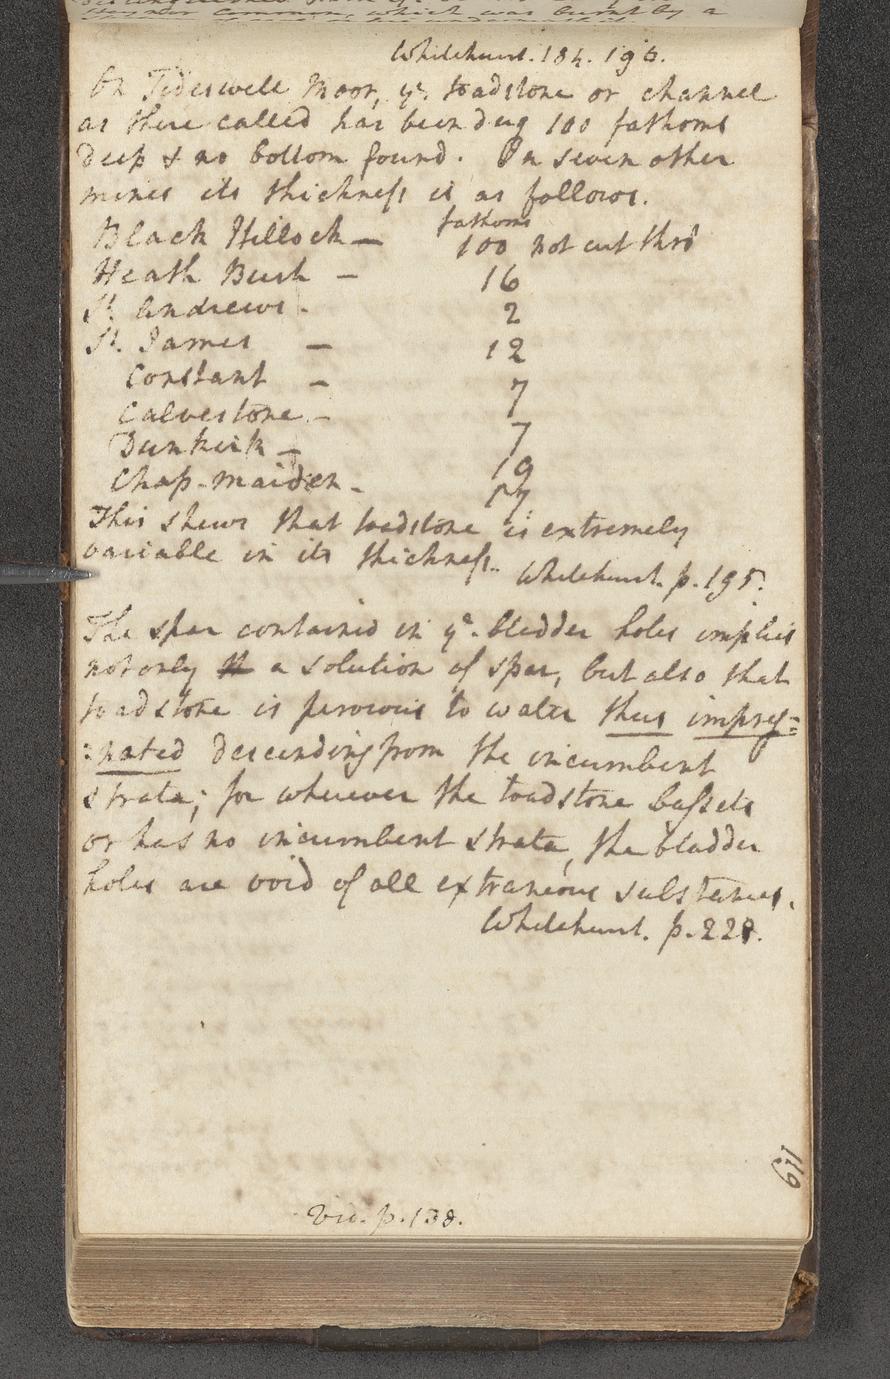 Hayner Common, which was burnt by a
Whitehurst. 184. 196.
On Tideswell Moor, yᵉ toadstone or channel
as there called has been dug 100 fathoms
deep & no bottom found. In seven other
mines its thickneſs is as follows.
fathoms
Black Hillock — 100 not cut thro'
Heath Bush — 16
St. Andrews - 2
St. James — 12
Constant - 7
Calvestone - 7
Dunkirk - 19
Chap-maiden - 17
This shews that toadstone is extremely
variable in its thickneſs. Whitehurst. p. 195.
The spar contained in yᵉ bladder holes implies
not only a solution of spar, but also that
toadstone is pervious to water thus impreg=
=nated descending from the incumbent
strata; for wherever the toadstone baſsets
or has no incumbent strata, the bladder
holes are void of all extraneous substances.
Whitehurst. p. 228.
119
Vid. p. 138.